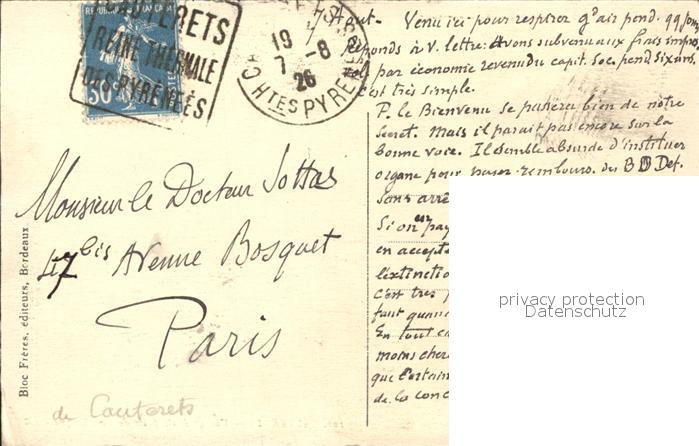 CAUTERETS
REINE THERMALE
DES PYRÉNÉES
30
19
7 -8
26
HTES PYRÉNÉES
7 Août - Venu ici pour respirer qq air pend. qq jours
Réponds à v. lettre: Avons subvenu aux frais impres.
par économie revenu du capit. Soc. pend. six ans.
C'est très simple.
P. le Bienvenu se passera bien de notre
secret. Mais il parait pas encore sur la
bonne voie. Il semble absurde d'instituer
organe pour payer rembours. des B D Def.
sans arrê
Si on en pay
en accept
l'extinctio
C'est très
faut quan
En tout c
moins cher
que certain
de la conc
Monsieur le Docteur Jottras
47 bis Avenue Bosquet
Paris
de Cauterets
Bloc Frères, éditeurs, Bordeaux
privacy protection
Datenschutz